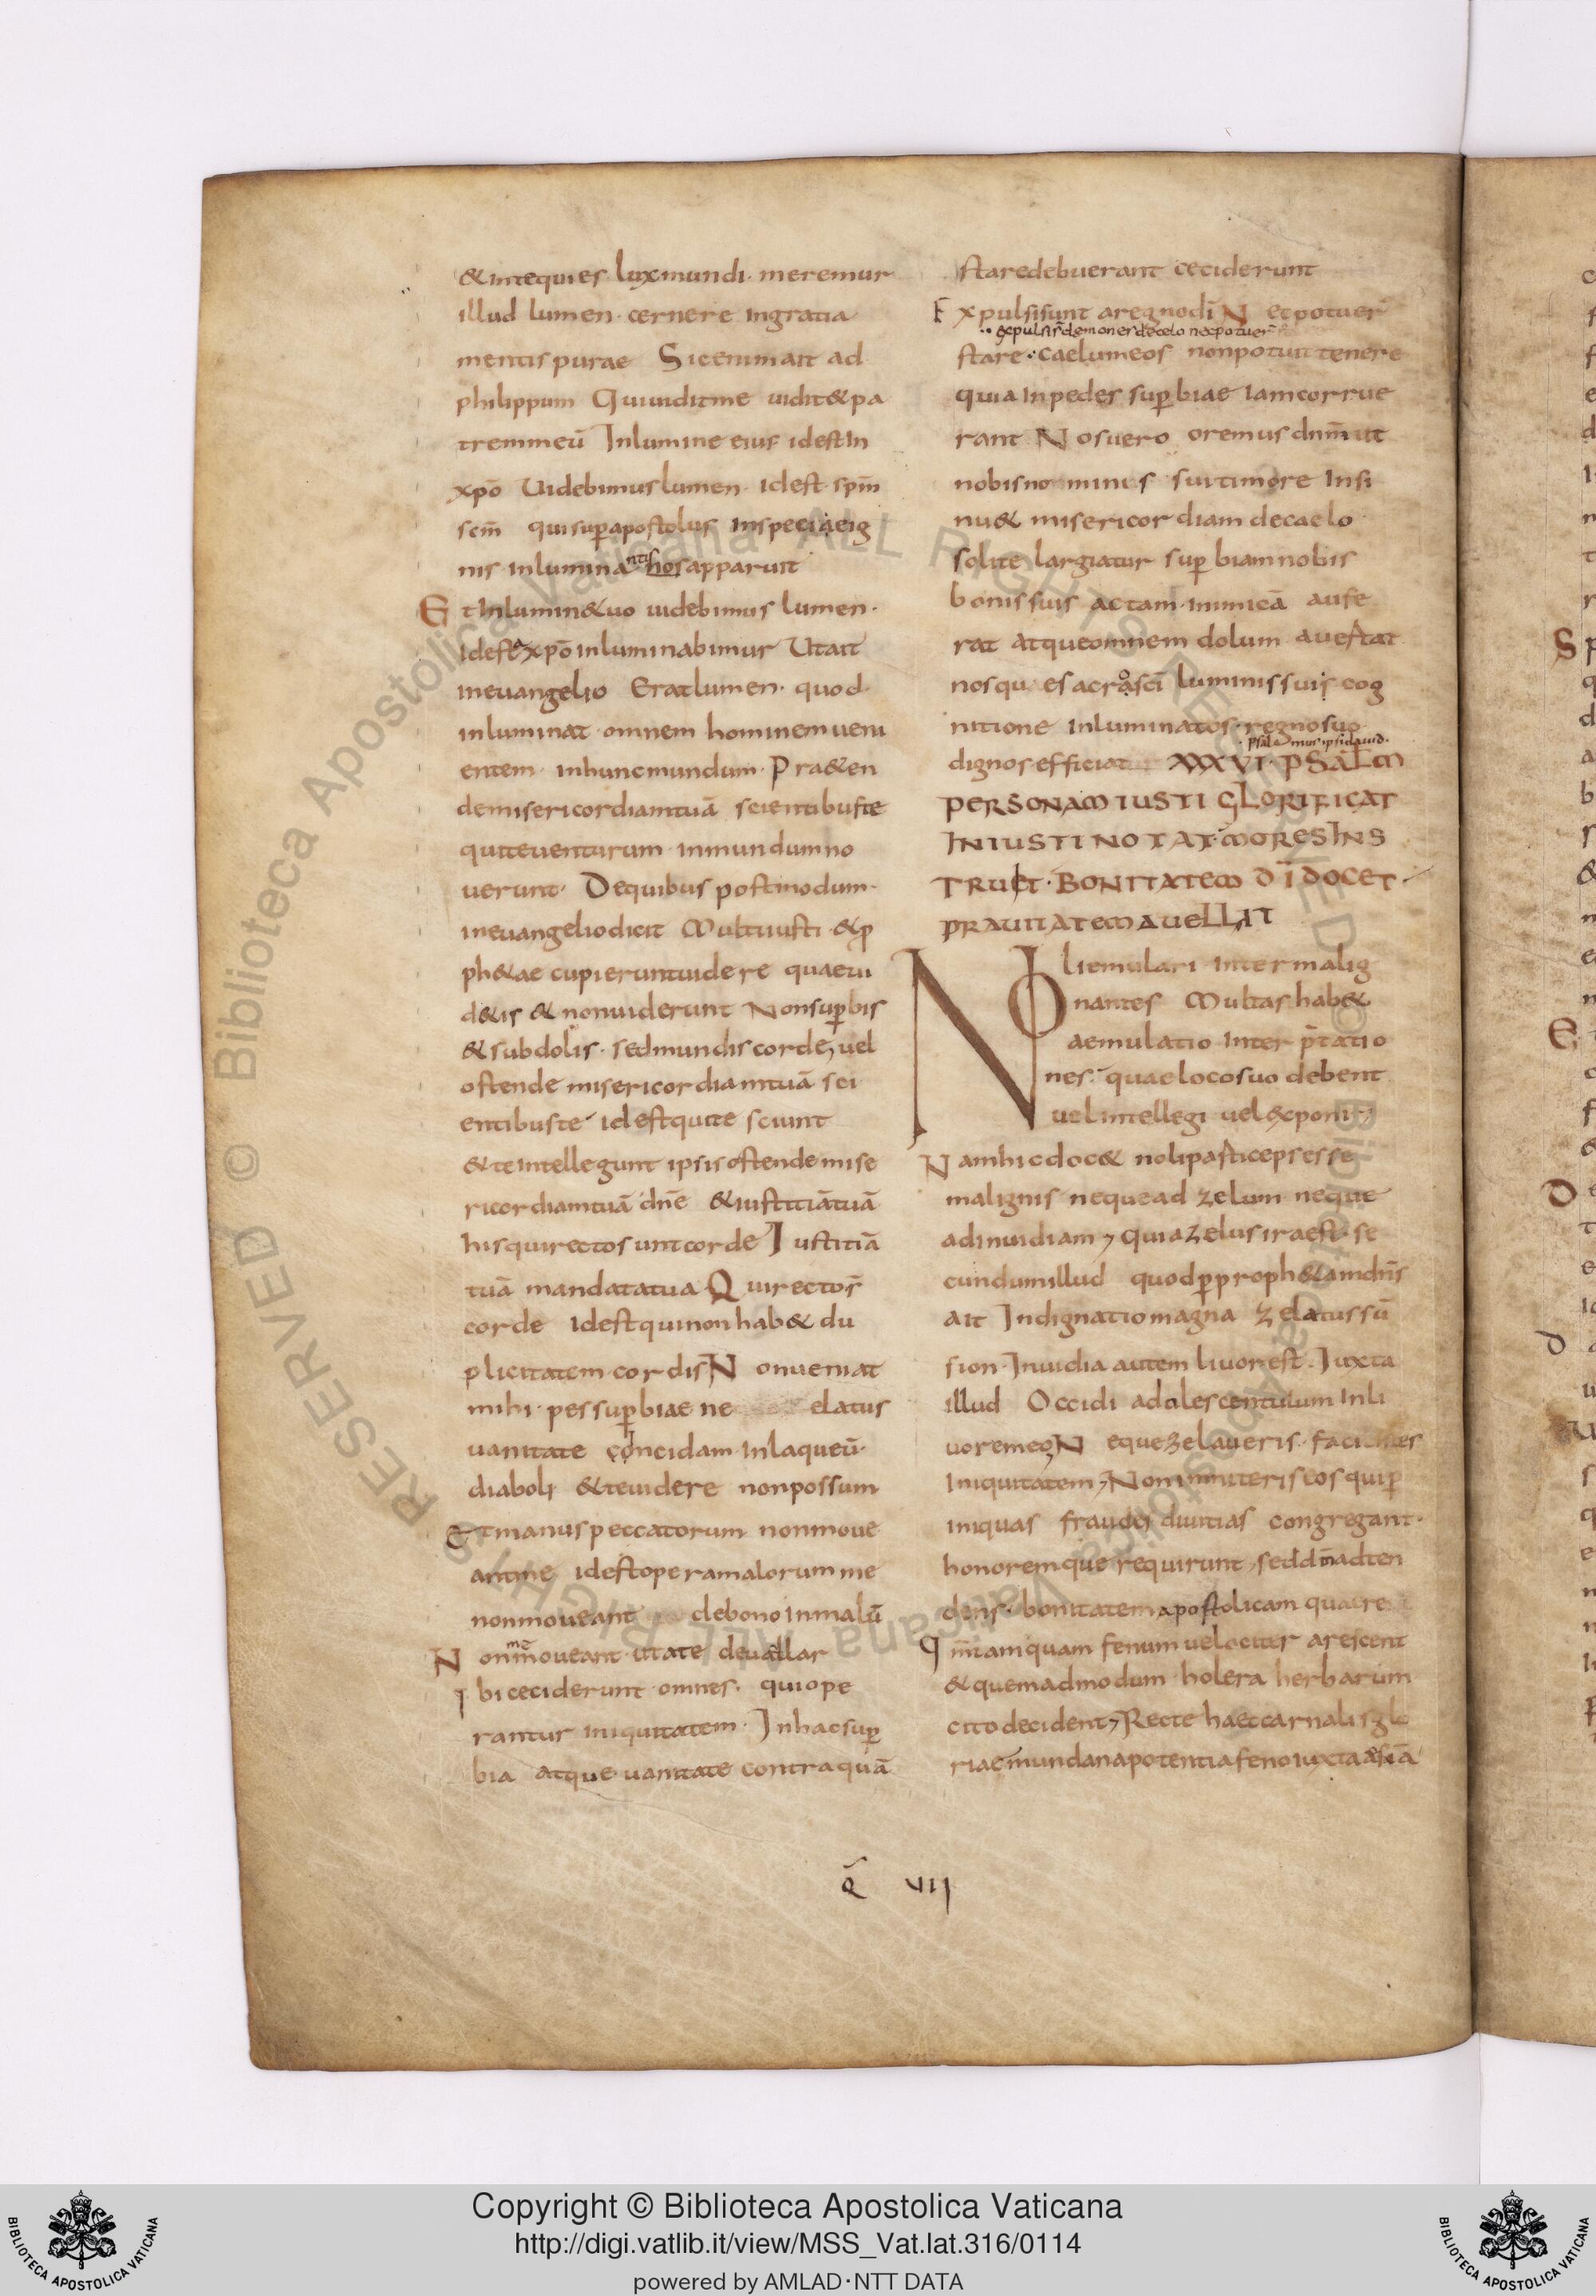 & intequies lux mundi · meremur
illud lumen · cernere ingratia
mentis purae Sicenim ait ad
philippum Qui uidit me uidit & pa
trem meū In lumine eius id est In
xpō Uidebimus lumen · id est spm̄
scm̄ qui sup apostolus in specie ig
nis inlumina ntis nos apparuit
Et In lumin& uo uidebimus lumen ·
id est xpō inluminabimur Ut ait
in euangelio Erat lumen · quod
inluminat omnem hominem ueni
entem · in hunc mundum · Pra&en
de misericordiam tuā scientibus te
qui te uenturum in mundum no
uerunt · De quibus postmodum ·
in euangelio dicit Multi iusti & p
ph&ae cupierunt uidere quae ui
d&is & non uiderunt Non supbis
& subdolis · sed mundis corde, uel
ostende misericordiam tuā sci
entibus te id est qui te sciunt
& te intellegunt ipsis ostende mise
ricordiam tuā dn̄e & iustitiā tuā
his qui recto sunt corde Iustitiā
tuā mandata tua Qui recto s̄
corde id est qui non hab& du
plicitatem cordis Non ueniat
mihi · pes supbiae ne elatus
uanitate concidam · In laqueū ·
diaboli & te uidere non possum
Et manus peccatorum non moue
ant me id est opera malorum me
non moueant de bono in malū
Non mē moueant · ut a te deuallar
Ibi ceciderunt omnes · qui ope
rantur iniquitatem · In hac sup
bia atque uanitate contra quā
stare debuerant ceciderunt
Expulsi sunt a regno dī N et potuer̄
·· expulsi s̄ demones de celo nec potuer̄
stare ·· caelum eos non potuit tenere
quia In pedes supbiae Iam corrue
rant Nos uero oremus dnm̄ ut
nobis no minis sui timore Insi
nu& misericordiam de caelo
solite largiatur supbiam nobis
bonis suis actam · inimicā aufe
rat atque omnem dolum auertat
nosqu es acro sci luminis suis cog
nitione Inluminatos · regno suo
· psal mus · ipsi dauid ·
dignos efficiat XXXVI · PSALM
PERSONAM IUSTI GLORIFICAT
INIUSTI NOTAT · MORES INS
TRUET · BONITATEM DĪ DOCET ·
PRAUITATEM AUELLIT
Noli emulari inter malig
nantes Multas hab&
aemulatio Interp̄tatio
nes · quae loco suo debent
uel intellegi uel exponi
Nam hic doc& noli pasticeps esse
malignis neque ad zelum neque
ad inuidiam, quia zelus ira est · se
cundum illud quod p proph&am dn̄s
ait Indignatio magna zelatus sū
sion · Inuidia autem liuor est · Iuxta
illud Occidi adolescentulum In li
uore meo, Neque zelaueris · facientes
Iniquitatem, Non imiteris eos qui p
iniquas fraudes diuitias congregant ·
honoremque requirunt, sed dm̄ adten
dens · bonitatem apostolicam quaere
Qm̄ tamquam fenum uelociter arescent
& quemadmodum · holera herbarum
cito decident, Recte haec carnalis glo
riae mundana potentia feno iuxta
Q̄ VII
Copyright © Biblioteca Apostolica Vaticana
http://digi.vatlib.it/view/MSS_Vat.lat.316/0114
powered by AMLAD·NTT DATA